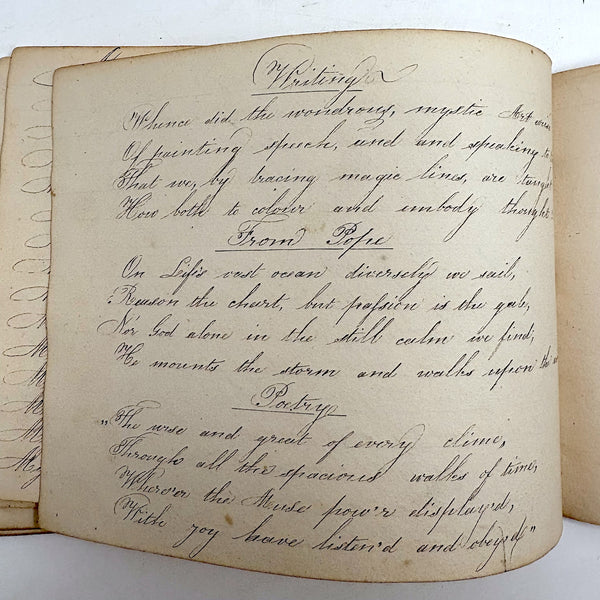 Writing
Whence did the wondrous, mystic Art arise
Of painting speech, and and speaking to
That we, by tracing magic lines, are taught
How both to colour and embody thought
From Pope
On Life's vast ocean diversely we sail,
Reason the chart, but passion is the gale,
Nor God alone in the still calm we find,
He mounts the storm and walks upon the
Poetry
"The wise and great of every clime,
Through all the spacious walks of time,
Where'er the Muse pow'r display'd,
With joy have listen'd and obey'd"